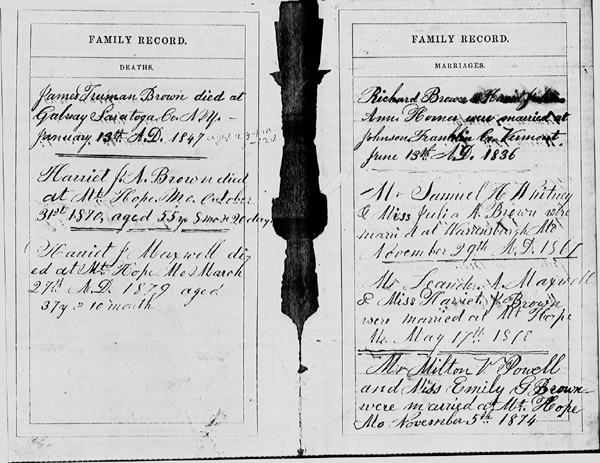 FAMILY RECORD.
DEATHS.
James Truman Brown died at
Galway Saratoga Co. N.Y. -
January 13th A.D. 1847
Harriet J. A. Brown died
at Mt. Hope Mo. October
31st 1870, aged 55 y 8 mo & 20 days
Harriet J. Maxwell di-
ed at Mt. Hope Mo March
27th A.D. 1879 aged
37 y & 10 month
FAMILY RECORD.
MARRIAGES.
Richard Brown &
Ann Homer were married at
Johnson Franklin Co. Vermont.
June 13th A.D. 1836
Mr Samuel H. Whitney
& Miss Julia A. Brown were
married at Warrensburgh Mo
November 29th A.D.
Mr Leander A. Maxwell
& Miss Harriet J. Brown
were married at Mt Hope
Mo. May 17th
Mr Milton V. Powell
and Miss Emily G. Brown
were married at Mt. Hope
Mo November 5th 1874